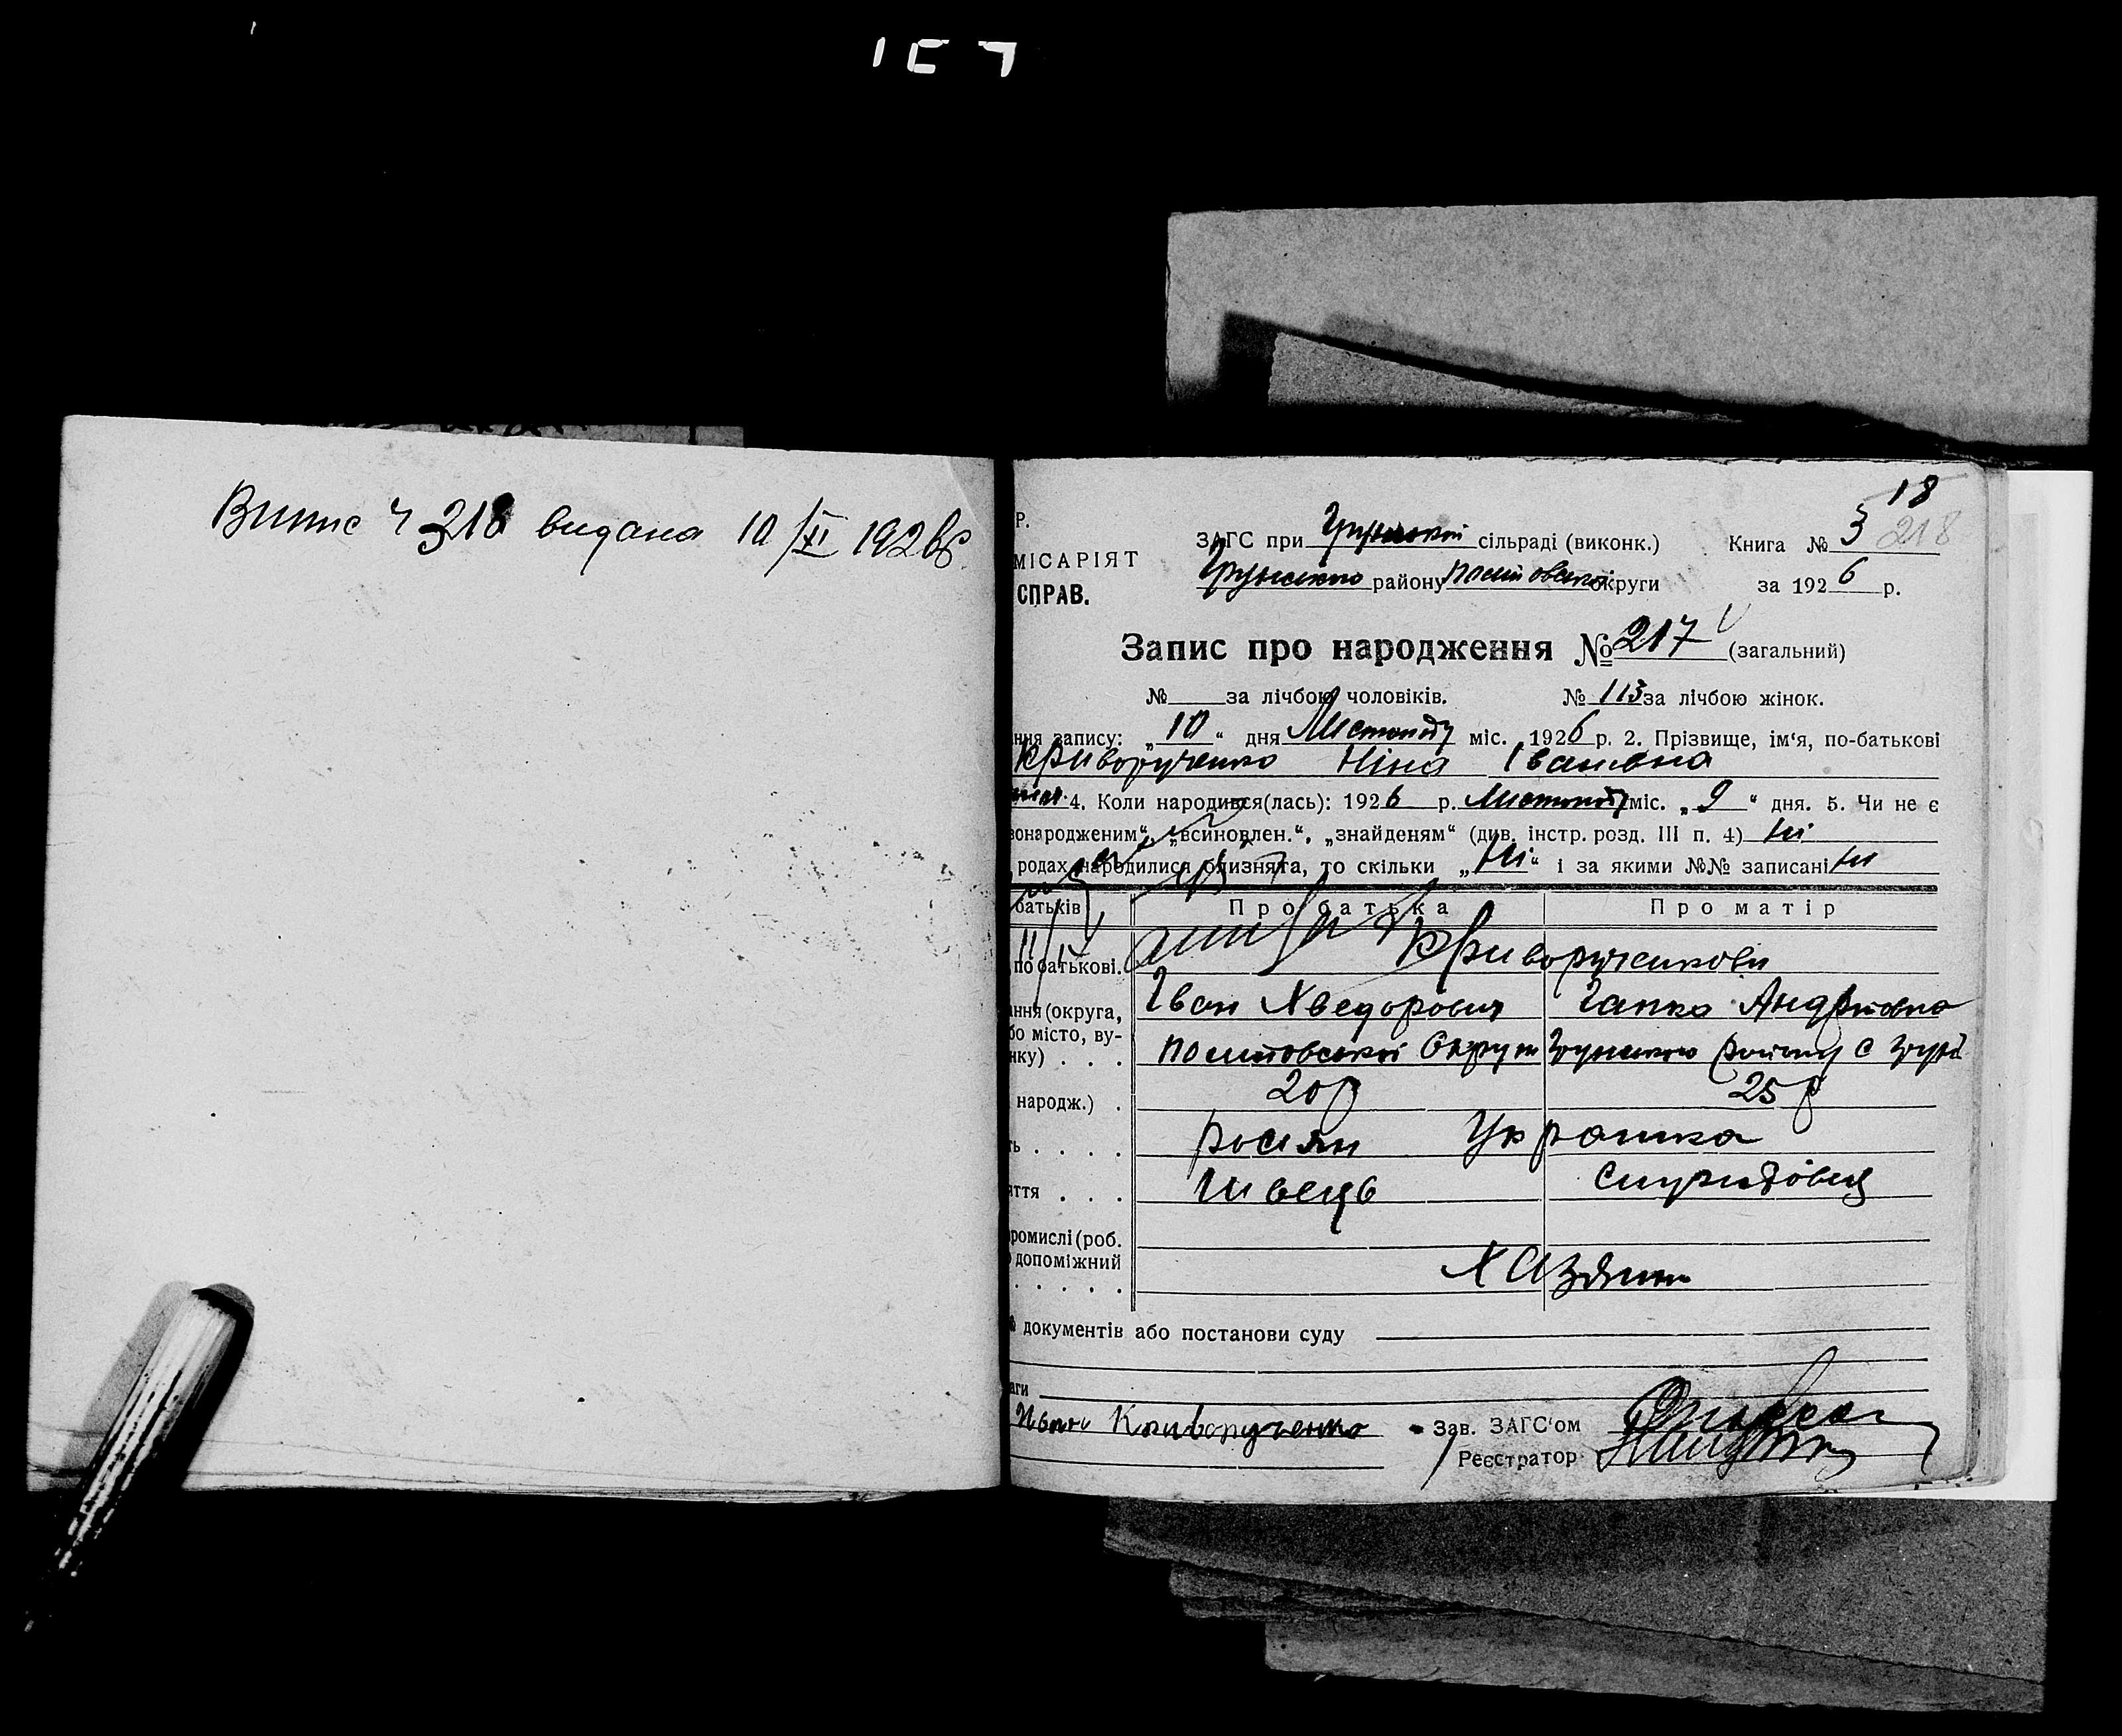 Випис Ч 218 видана 10/XI 1926 р.
18
Р.
ЗАГС при Грунській сільраді (виконк.) Книга № 3 218
МІСАРІЯТ
Грунського району округи за 1926 р.
СПРАВ.
Запис про народження № 217 (загальний)
№ за лічбою чоловіків. № 113 за лічбою жінок.
ння запису: „10“ дня Листопаду міс. 1926 р. 2. Прізвище, ім‘я, по-батькові
Криворученко Ніна Івановна
4. Коли народився(лась): 1926 р. Листопаду міс. „9“ дня. 5. Чи не є
вонародженим“, „всиновлен.“, „знайденям“ (див. інстр. розд. III п. 4) Ні
родах народилися близнята, то скільки „Ні“ і за якими №№ записані Ні
батьків Про батька Про матір
по батькові. Криворученкови
Іван Хведорович Гапка Андріївна
ання (округа,
бо місто, ву-
нку) . . . Округи Грунського району с Грунь
народж.) . 20 р 25 р
ть . . . . росіян Українка
яття . . . Швець
ромислі (роб.
допоміжний
. . . . . Хазяини
№ документів або постанови суду
аги
Иван Криворученко Зав. ЗАГС‘ом
Реєстратор